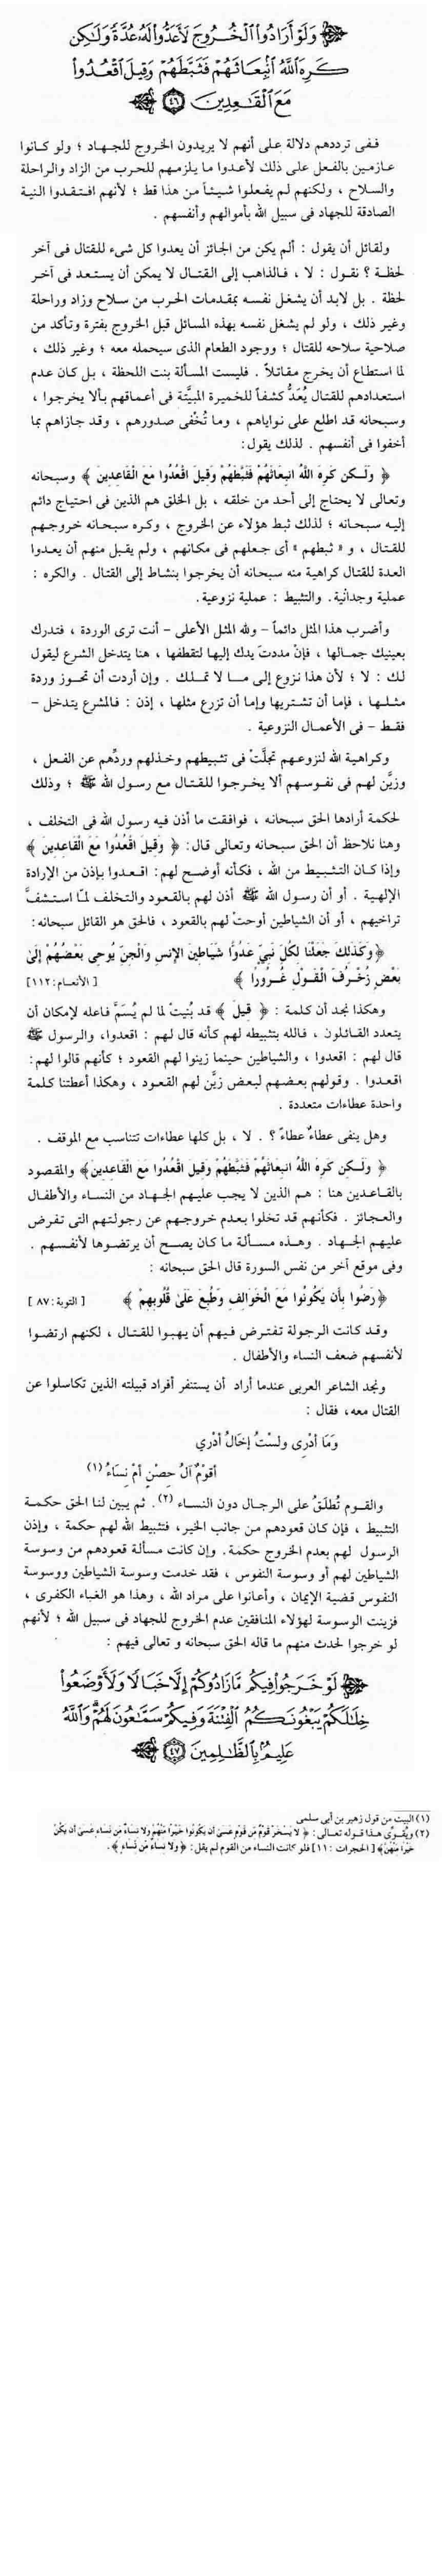 وَلَوْ أَرَادُوا الْخُرُوجَ لَأَعَدُّوا لَهُ عُدَّةً وَلَٰكِن
كَرِهَ اللَّهُ انبِعَاثَهُمْ فَثَبَّطَهُمْ وَقِيلَ اقْعُدُوا
مَعَ الْقَاعِدِينَ ﴿٤٦﴾
ففى ترددهم دلالة على أنهم لا يريدون الخروج للجهاد ؛ ولو كانوا
عازمين بالفعل على ذلك لأعدوا ما يلزمهم للحرب من الزاد والراحلة
والسلاح ، ولكنهم لم يفعلوا شيئاً من هذا قط ؛ لأنهم افتقدوا النية
الصادقة للجهاد فى سبيل الله بأموالهم وأنفسهم .
ولقائل أن يقول : ألم يكن من الجائز أن يعدوا كل شىء للقتال فى آخر
لحظة ؟ نقول : لا ، فالذاهب إلى القتال لا يمكن أن يستعد فى آخر
لحظة . بل لابد أن يشغل نفسه بمقدمات الحرب من سلاح وزاد وراحلة
وغير ذلك ، ولو لم يشغل نفسه بهذه المسائل قبل الخروج بفترة وتأكد من
صلاحية سلاحه للقتال ؛ ووجود الطعام الذى سيحمله معه ؛ وغير ذلك ،
لما استطاع أن يخرج مقاتلاً . فليست المسألة بنت اللحظة ، بل كان عدم
استعدادهم للقتال يُعَدُّ كشفاً للخميرة المبيَّتة فى أعماقهم بألا يخرجوا ،
وسبحانه قد اطلع على نواياهم ، وما تُخْفى صدورهم ، وقد جازاهم بما
أخفوا فى أنفسهم . لذلك يقول:
﴿ وَلَـكن كَرِهَ اللَّهُ انبِعَاثَهُمْ فَثَبَّطَهُمْ وَقيلَ اقْعُدُوا مَعَ الْقَاعِدِين ﴾ وسبحانه
وتعالى لا يحتاج إلى أحد من خلقه ، بل الخلق هم الذين فى احتياج دائم
إليه سبحانه ؛ لذلك ثبط هؤلاء عن الخروج ، وكره سبحانه خروجهم
للقتال ، و « ثبطهم » أى جعلهم فى مكانهم ، ولم يقبل منهم أن يعدوا
العدة للقتال كراهية منه سبحانه أن يخرجوا بنشاط إلى القتال . والكره :
عملية وجدانية. والتثبيط : عملية نزوعية.
وأضرب هذا المثل دائماً - ولله المثل الأعلى - أنت ترى الوردة ، فتدرك
بعينيك جمالها ، فإنْ مددتَ يدك إليها لتقطفها ، هنا يتدخل الشرع ليقول
لك : لا ؛ لأن هذا نزوع إلى ما لا تملك . وإن أردت أن تحوز وردة
مثلها ، فإما أن تشتريها وإما أن تزرع مثلها ، إذن : فالمشرع يتدخل -
فقط - فى الأعمال النزوعية .
وكراهية الله لنزوعهم تجلَّتْ فى تثبيطهم وخذلهم وردِّهم عن الفعل ،
وزيَّن لهم فى نفوسهم ألا يخرجوا للقتال مع رسول الله ﷺ ؛ وذلك
لحكمة أرادها الحق سبحانه ، فوافقت ما أذن فيه رسول الله فى التخلف ،
وهنا نلاحظ أن الحق سبحانه وتعالى قال: ﴿ وَقِيلَ اقْعُدُوا مَعَ الْقَاعِدِينَ ﴾
وإذا كان التثبيط من الله ، فكأنه أوضح لهم: اقعدوا بإذن من الإرادة
الإلهية . أو أن رسول الله ﷺ أذن لهم بالقعود والتخلف لمَّا استشفَّ
تراخيهم ، أو أن الشياطين أوحتْ لهم بالقعود ، فالحق هو القائل سبحانه:
﴿وَكَذَلِكَ جَعَلْنَا لِكُلِّ نَبِيٍّ عَدُوًّا شَيَاطِينَ الإنسِ وَالْجِنِّ يُوحِي بَعْضُهُمْ إِلَىٰ
بَعْضٍ زُخْرُفَ الْقَوْلِ غُرُورًا ﴾ [ الأنعام: ١١٢]
وهكذا نجد أن كلمة : ﴿ قيلَ ﴾ قد بُنيتْ لما لم يُسَمَّ فاعله لإمكان أن
يتعدد القائلون ، فالله بتثبيطه لهم كأنه قال لهم : اقعدوا، والرسول ﷺ
قال لهم : اقعدوا ، والشياطين حينما زينوا لهم القعود ؛ كأنهم قالوا لهم:
اقعدوا . وقولهم بعضهم لبعض زيَّن لهم القعود ، وهكذا أعطتنا كلمة
واحدة عطاءات متعددة .
وهل ينفى عطاءٌ عطاءً ؟ . لا ، بل كلها عطاءات تتناسب مع الموقف .
﴿ وَلَـكن كَرِهَ اللَّهُ انبِعَاثَهُمْ فَثَبَّطَهُمْ وَقِيلَ اقْعُدُوا مَعَ الْقَاعِدِينَ﴾ والمقصود
بالقاعدين هنا : هم الذين لا يجب عليهم الجهاد من النساء والأطفال
والعجائز . فكأنهم قد تخلوا بعدم خروجهم عن رجولتهم التى تفرض
عليهم الجهاد . وهذه مسألة ما كان يصح أن يرتضوها لأنفسهم .
وفى موقع آخر من نفس السورة قال الحق سبحانه :
﴿رَضُوا بِأَن يَكُونُوا مَعَ الْخَوَالِفِ وَطُبِعَ عَلَىٰ قُلُوبِهِمْ ﴾ [ التوبة : ٨٧ ]
وقد كانت الرجولة تفترض فيهم أن يهبوا للقتال ، لكنهم ارتضوا
لأنفسهم ضعف النساء والأطفال .
ونجد الشاعر العربى عندما أراد أن يستنفر أفراد قبيلته الذين تكاسلوا عن
القتال معه، فقال :
وَمَا أَدْرِى ولسْتُ إخَالُ أدْرِي
أقَوْمٌ آلُ حِصْنٍ أمْ نِسَاءُ (١)
والقوم تُطلَقُ على الرجال دون النساء (٢). ثم يبين لنا الحق حكمة
التثبيط ، فإن كان قعودهم من جانب الخير، فتثبيط الله لهم حكمة ، وإذن
الرسول لهم بعدم الخروج حكمة. وإن كانت مسألة قعودهم من وسوسة
الشياطين لهم أو وسوسة النفوس ، فقد خدمت وسوسة الشياطين ووسوسة
النفوس قضية الإيمان ، وأعانوا على مراد الله ، وهذا هو الغباء الكفرى ،
فزينت الوسوسة لهؤلاء المنافقين عدم الخروج للجهاد فى سبيل الله ؛ لأنهم
لو خرجوا لحدث منهم ما قاله الحق سبحانه و تعالى فيهم :
لَوْ خَرَجُوا فِيكُم مَّا زَادُوكُمْ إِلَّا خَبَالًا وَلَأَوْضَعُوا
خِلَالَكُمْ يَبْغُونَكُمُ الْفِتْنَةَ وَفِيكُمْ سَمَّاعُونَ لَهُمْ وَاللَّهُ
عَلِيمٌ بِالظَّالِمِينَ ﴿٤٧﴾
(١) البيت من قول زهير بن أبى سلمى
(٢) ويُقوِّى هذا قوله تعالى: ﴿ لا يَسْخَرْ قَوْمٌ مِّن قَوْمٍ عَسَىٰ أَن يَكُونُوا خَيْرًا مِّنْهُمْ وَلا نِسَاءٌ مِّن نِّسَاءٍ عَسَىٰ أَن يَكُنَّ
خَيْرًا مِّنْهُنَّ﴾ [ الحجرات : ١١] فلو كانت النساء من القوم لم يقل: ﴿ولا نِسَاءٌ مِّن نِّسَاءٍ ﴾.